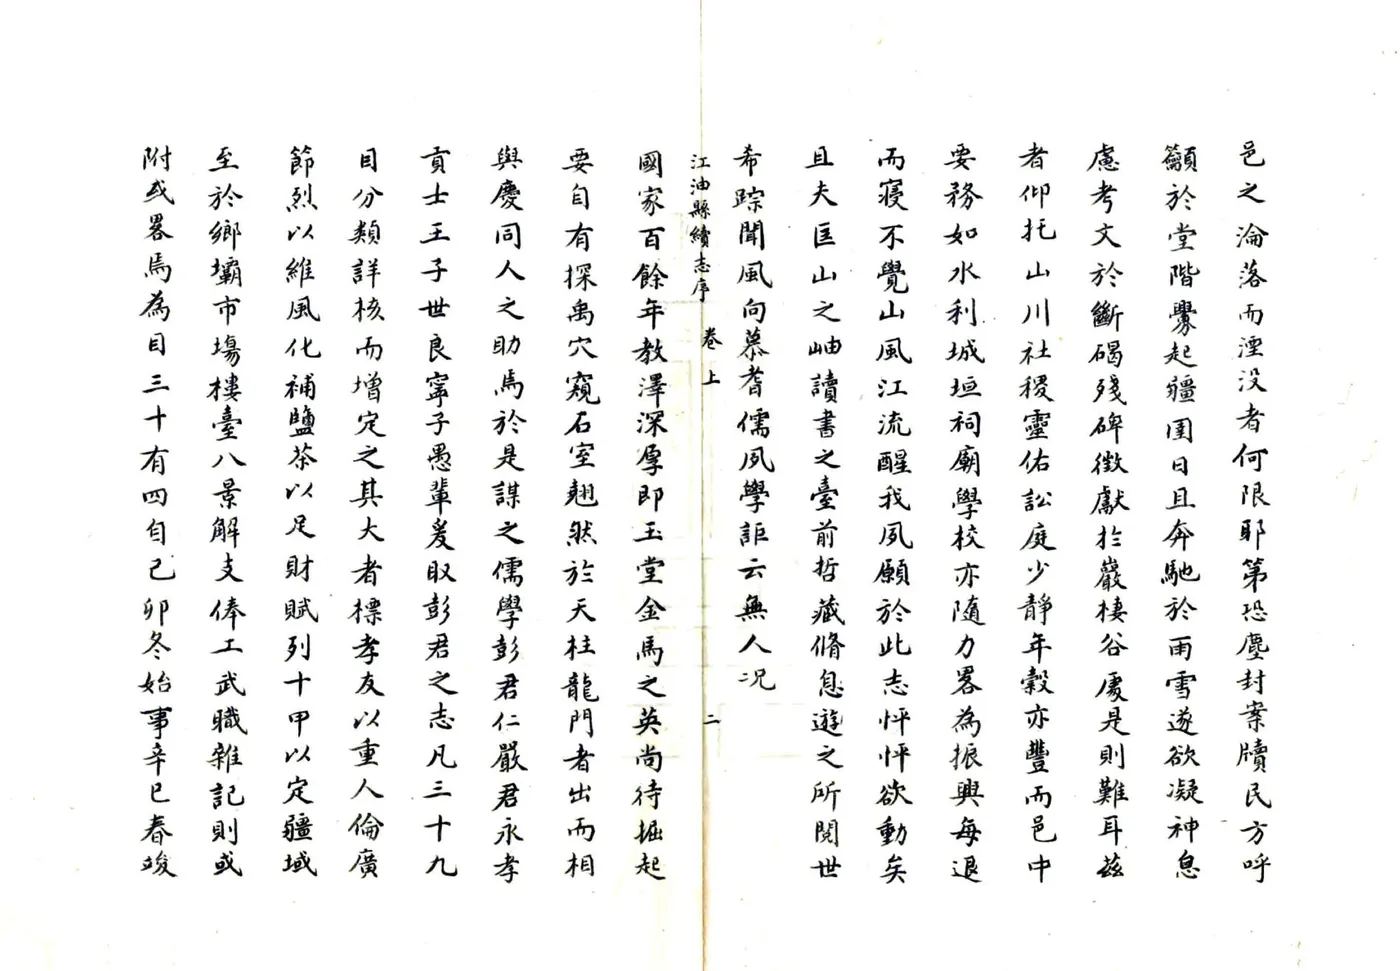 邑之淪落而湮没者何限耶第恐塵封案牘民方呼
籲於堂階釁起疆圉日且奔馳於雨雪遂欲凝神息
慮考文於斷碣殘碑徴獻扵巖棲谷處是則難耳兹
者仰托山川社稷靈佑訟庭少靜年穀亦豐而邑中
要務如水利城垣祠廟學校亦随力畧為振興每退
而寝不覺山風江流醒我夙願於此志怦怦欲動矣
且夫匡山之岫讀書之臺前哲藏脩息遊之所閲世
希踪聞風向慕耆儒夙學詎云無人况
江油縣續志序 卷上 二
國家百餘年教澤深厚即玉堂金馬之英尚待掘起
要自有探禹穴窺石室翹然於天柱龍門者出而相
與慶同人之助焉於是謀之儒學彭君仁嚴君永孝
貢士王子世良寗子愚輩爰取彭君之志凡三十九
目分類詳核而增定之其大者標孝友以重人倫廣
節烈以維風化補鹽茶以足財賦列十甲以定疆域
至於鄉壩市塲樓臺八景解支俸工武職雜記則或
附或畧焉為目三十有四自己卯冬始事辛巳春竣